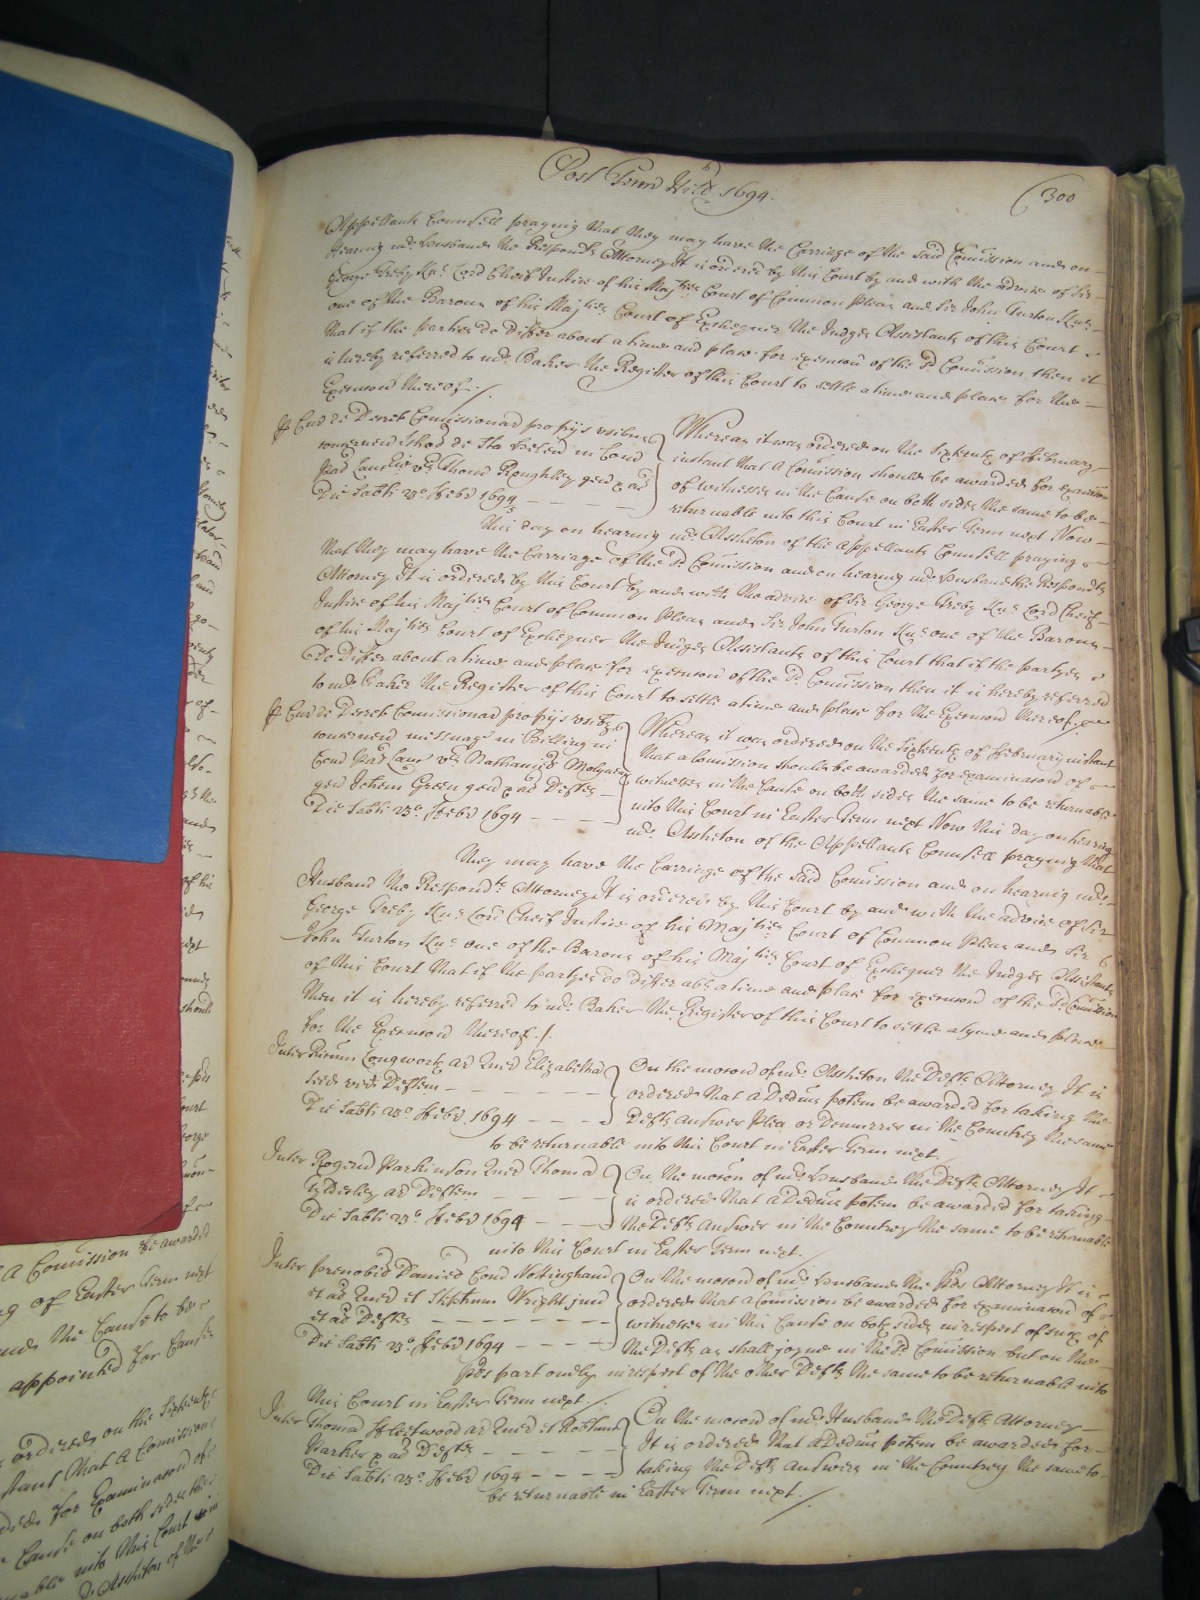 Post Term Hill 1694.
(300
Appellants Counsell praying that they may have the Carriage of the said Comission and on
hearing mr Husband the Respondts Attorney It is ordered by this Court by and with the advice of Sir
George Treby Knt Lord Cheif Justice of his Majties Court of Common pleas and Sir John Turton Knt
one of the Barons of his Majties Court of Exchequer the Judges Assistants of this Court
that if the parties do differ about a time and place for execucon of the sd Comission then it
is hereby referred to mr Baker the Register of this Court to settle a time and place for the
Execucon thereof./
Decret Comissionar pro pijs usibus
concernen de Sta Helen in Com
Lanc vers Thom Roughley gen et at
Die Sabti 23o Febr 1694
Whereas it was ordered on the sixteenth of February
instant that A Comission should be awarded for exaiacon
of witnesses in the Cause on both sides the same to be
returnable into this Court in Easter Term next Now
this day on hearing mr Assheton of the Appellants Counsell praying
that they may have the Carriage of the sd Comission and on hearing mr Husband the Respondts
Attorney It is ordered by this Court by and with the advice of Sir George Treby Knt Lord Cheif
Justice of his Majties Court of Common pleas and Sir John Turton Knt one of the Barons
of his Majties Court of Exchequer the Judges Assistants of this Court that if the partyes
do differ about a time and place for execucon of the sd Comission then it is hereby referred
to mr Baker the Register of this Court to settle a time and place for the Execucon thereof
Decret Comissionar pro pijs usibus
concernen messuag in Billing in
Com Lanc vers Nathaniel Molyneux
gen Green gen et at Deftes
Die Sabti 23o Febr 1694
Whereas it was ordered on the sixteenth of February instant
that a Comission should be awarded for examinacon of
witnesses in the Cause on both sides the same to be returnable
into this Court in Easter Term next Now this day on hearing
mr Assheton of the Appellants Counsell praying that
they may have the Carriage of the said Comission and on hearing mr
Husband the Respondts Attorney It is ordered by this Court by and with the advice of Sir
George Treby Knt Lord Cheif Justice of his Majties Court of Common pleas and Sir
John Turton Knt one of the Barons of his Majties Court of Exchequer the Judges Assistants
of this Court that if the partyes do differ abt a time and place for execucon of the sd Comission
then it is hereby referred to mr Baker the Register of this Court to settle a tyme and place
for the Execucon thereof./
Inter Longworth ar Quer Elizabetha
vid Deftem
Die Sabti 23o Febr 1694
On the mocon of mr Assheton the Defts Attorney It is
ordered that a Dedus potem be awarded for taking the
Defts Answer plea or Demurrer in the Countrey the same
to be returnable into this Court in Easter Term next.
Inter Rogerd Parkinson Quer Thoma
Tyldesley ar Deftem
Die Sabti 23o Febr 1694
On the mocon of mr Husband the Defts Attorney It
is ordered that a Dedus potem be awarded for taking
the Defts Answer in the Countrey the same to be returnable
into this Court in Easter Term next.
Inter prenobil Daniel Com Nottingham
et at Quer et Stephum Wright jun
et at Deftes
Die Sabti 23o Febr 1694
On the mocon of mr Husband the Attorney It is
ordered that a Comission be awarded for examinacon of
witnesses in this Cause on both sides in respect of such of
the Defts as shall joyne in the sd Comission but on the
part onely in respect of the other Defts the same to be returnable into
this Court in Easter Term next./
Inter Thoma Fleetwood ar Quer et
Parker et at Deftes
Die Sabti 23o Febr 1694
On the mocon of mr Husband the Defts Attorney
It is ordered that a Dedus potem be awarded for
taking the Defts Answers in the Countrey the same to
be returnable in Easter Term next./
A Comission be awarded
of Easter Term next
the Cause to be
appointed for Causes
ordered on the sixteenth
instant that A Comission
for Examinacon of
Cause on both sides the
into this Court in
Assheton of the